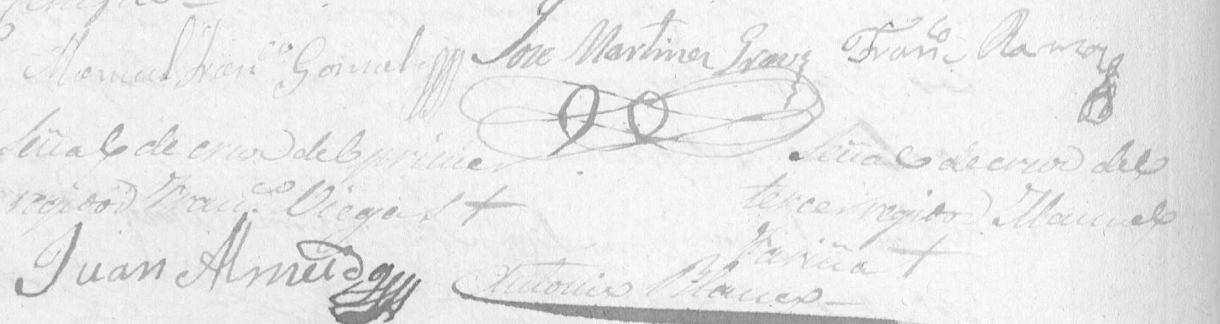 Manuel Fran.co Gonzal
Jose Martinez Grang
Fran.co Ramos
Señal de cruz del primer
regidor Fran.co Viegas +
Señal de cruz del
tercer regidor Manuel
Fariña +
Juan Almeida
Antonio Blanco